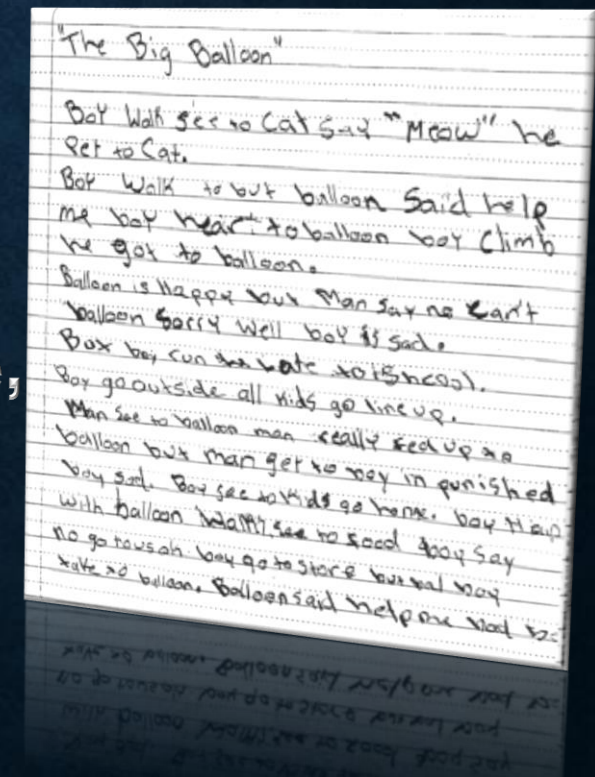 "The Big Balloon"
Boy Walk see to Cat Say "Meow" he
Pet to Cat.
Boy Walk to but balloon Said help
me boy hear to balloon boy Climb
he got to balloon.
Balloon is Happy but Man say no can't
balloon Sorry Well boy is sad.
But boy run late to school.
Boy go outside all kids go line up.
Man See to balloon man really fed up to
balloon but man get to boy in punished
boy sad. Boy see to kids go home. boy
with balloon Walk see to food boy Say
no go boy go to store but bad boy
take to balloon. Balloon said help me bad